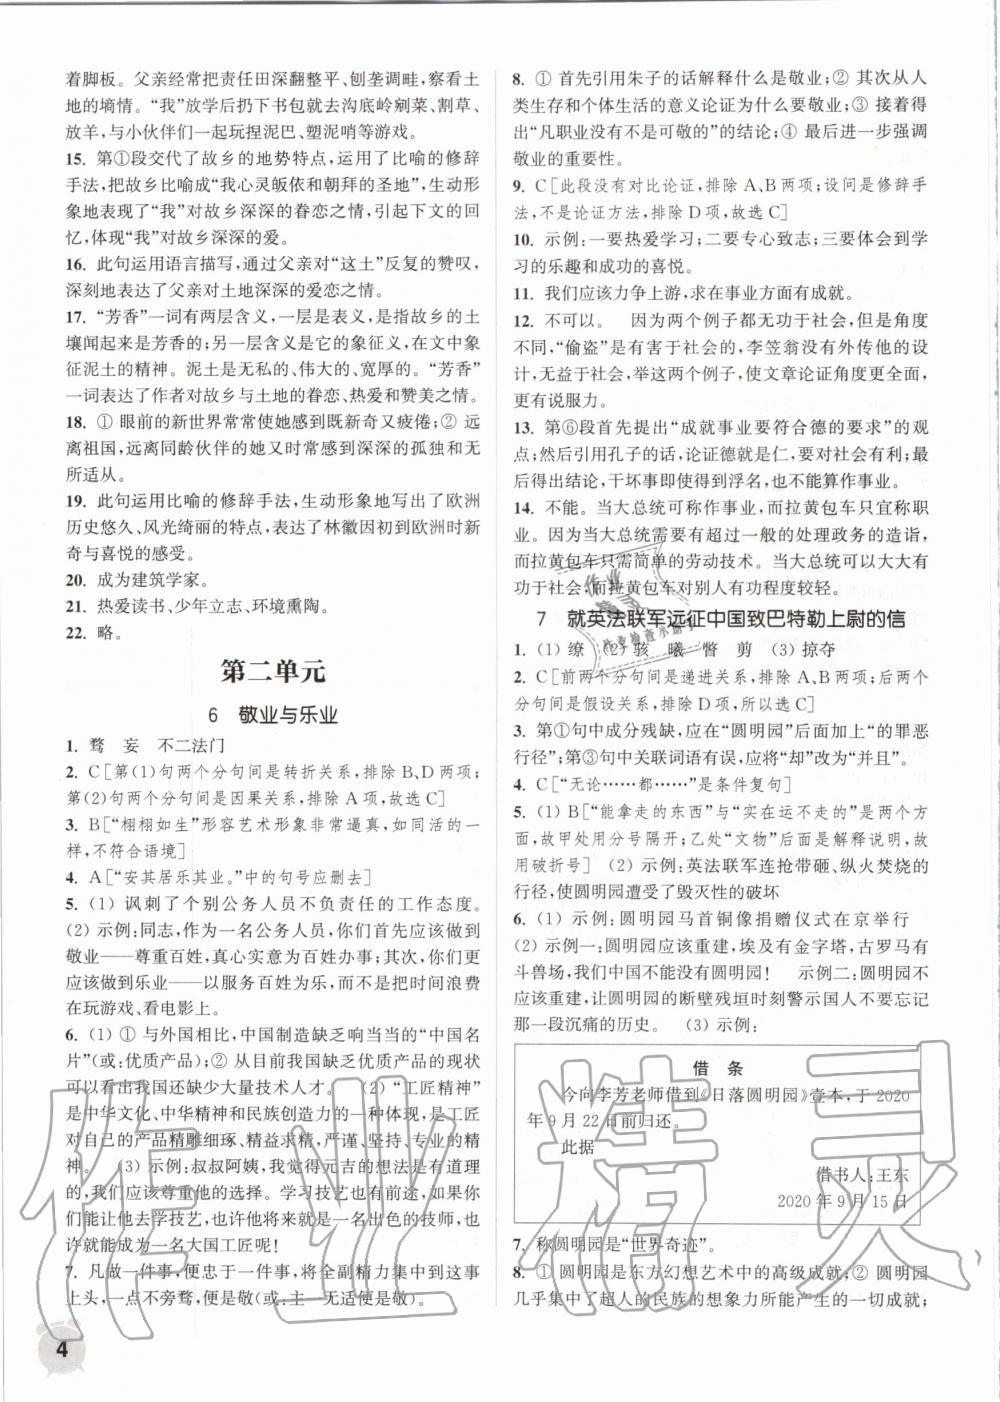 着脚板。父亲经常把责任田深翻整平、刨垄调畦,察看土
地的墒情。“我”放学后扔下书包就去沟底岭剜菜、割草、
放羊,与小伙伴们一起玩捏泥巴、塑泥哨等游戏。
15. 第①段交代了故乡的地势特点,运用了比喻的修辞
手法,把故乡比喻成“我心灵皈依和朝拜的圣地”,生动形
象地表现了“我”对故乡深深的眷恋之情,引起下文的回
忆,体现“我”对故乡深深的爱。
16. 此句运用语言描写,通过父亲对“这土”反复的赞叹,
深刻地表达了父亲对土地深深的爱恋之情。
17. “芳香”一词有两层含义,一层是表义,是指故乡的土
壤闻起来是芳香的;第二层含义是它的象征义,在文中象
征泥土的精神。泥土是无私的、伟大的、宽厚的。“芳香”
一词表达了作者对故乡与土地的眷恋、热爱和赞美之情。
18. ① 眼前的新世界常常使她感到既新奇又疲倦;② 远
离祖国,远离同龄伙伴的她又时常感到深深的孤独和无
所适从。
19. 此句运用比喻的修辞手法,生动形象地写出了欧洲
历史悠久、风光绮丽的特点,表达了林徽因初到欧洲时新
奇与喜悦的感受。
20. 成为建筑学家。
21. 热爱读书、少年立志、环境熏陶。
22. 略。
第二单元
6 敬业与乐业
1. 骛 妄 不二法门
2. C[第(1)句两个分句间是转折关系,排除B、D两项;
第(2)句两个分句间是因果关系,排除A项,故选C]
3. B[“栩栩如生”形容艺术形象非常逼真,如同活的一
样,不符合语境]
4. A[“安其居乐其业。”中的句号应删去]
5. (1) 讽刺了个别公务人员不负责任的工作态度。
(2) 示例:同志,作为一名公务人员,你们首先应该做到
敬业——尊重百姓,真心实意为百姓办事;其次,你们更
应该做到乐业——以服务百姓为乐,而不是把时间浪费
在玩游戏、看电影上。
6. (1) ① 与外国相比,中国制造缺乏响当当的“中国名
片”(或:优质产品);② 从目前我国缺乏优质产品的现状
可以看出我国还缺少大量技术人才。 (2) “工匠精神”
是中华文化、中华精神和民族创造力的一种体现,是工匠
对自己的产品精雕细琢、精益求精,严谨、坚持、专业的精
神。 (3) 示例:叔叔阿姨,我觉得元吉的想法是有道理
的,我们应该尊重他的选择。学习技艺也有前途,如果你
们能让他去学技艺,也许他将来就是一名出色的技师,也
许就能成为一名大国工匠呢!
7. 凡做一件事,便忠于一件事,将全副精力集中到这事
上头,一点不旁骛,便是敬(或:主一无适便是敬)。
4
8. ① 首先引用朱子的话解释什么是敬业;② 其次从人
类生存和个体生活的意义论证为什么要敬业;③ 接着得
出“凡职业没有不是可敬的”的结论;④ 最后进一步强调
敬业的重要性。
9. C[此段没有对比论证,排除A、B两项;设问是修辞手
法,不是论证方法,排除D项,故选C]
10. 示例:一要热爱学习;二要专心致志;三要体会到学
习的乐趣和成功的喜悦。
11. 我们应该力争上游,求在事业方面有成就。
12. 不可以。 因为两个例子都无功于社会,但是角度
不同,“偷盗”是有害于社会的,李笠翁没有外传他的设
计,无益于社会,举这两个例子,使文章论证角度更全面,
更有说服力。
13. 第⑥段首先提出“成就事业要符合德的要求”的观
点;然后引用孔子的话,论证德就是仁,要对社会有利;最
后得出结论,干坏事即使成功,也不能算作事业。
14. 不能。当大总统可称作事业,拉黄包车只宜称职
业。因为当大总统需要有超过一般的处理政务的造诣,
而拉黄包车只需简单的劳动技术。当大总统可以大大有
功于社会,而拉黄包车对别人有功程度较轻。
7 就英法联军远征中国致巴特勒上尉的信
1. (1) 缭 (2) 骇 曦 瞥 剪 (3) 掠夺
2. C[前两个分句间是递进关系,排除A、B两项;后两个
分句间是假设关系,排除D项,所以选C]
3. 第①句中成分残缺,应在“圆明园”后面加上“的罪恶
行径”;第③句中关联词语有误,应将“却”改为“并且”。
4. C[“无论……都……”是条件复句]
5. (1) B[“能拿走的东西”与“实在运不走的”是分类列
举,故甲处用分号隔开;乙处“文物”后面是解释说明,故
用破折号] (2) 示例:英法联军连抢带砸、纵火焚烧的
行径,使圆明园遭受了毁灭性的破坏
6. (1) 示例:圆明园马首铜像捐赠仪式在京举行
(2) 示例一:圆明园应该重建,埃及有金字塔,古罗马有
斗兽场,我们中国不能没有圆明园! 示例二:圆明园不
应该重建,让圆明园的断壁残垣时刻警示国人不要忘记
那一段沉痛的历史。 (3) 示例:
借 条
今向李芳老师借到《日落圆明园》壹本,于2020
年9月22日前归还。
此据
借书人:王东
2020年9月15日
7. 称圆明园是“世界奇迹”。
8. ① 圆明园是东方幻想艺术中的高级成就;② 圆明园
几乎集中了超人的民族的想象力所能产生的一切成就;
作业精灵